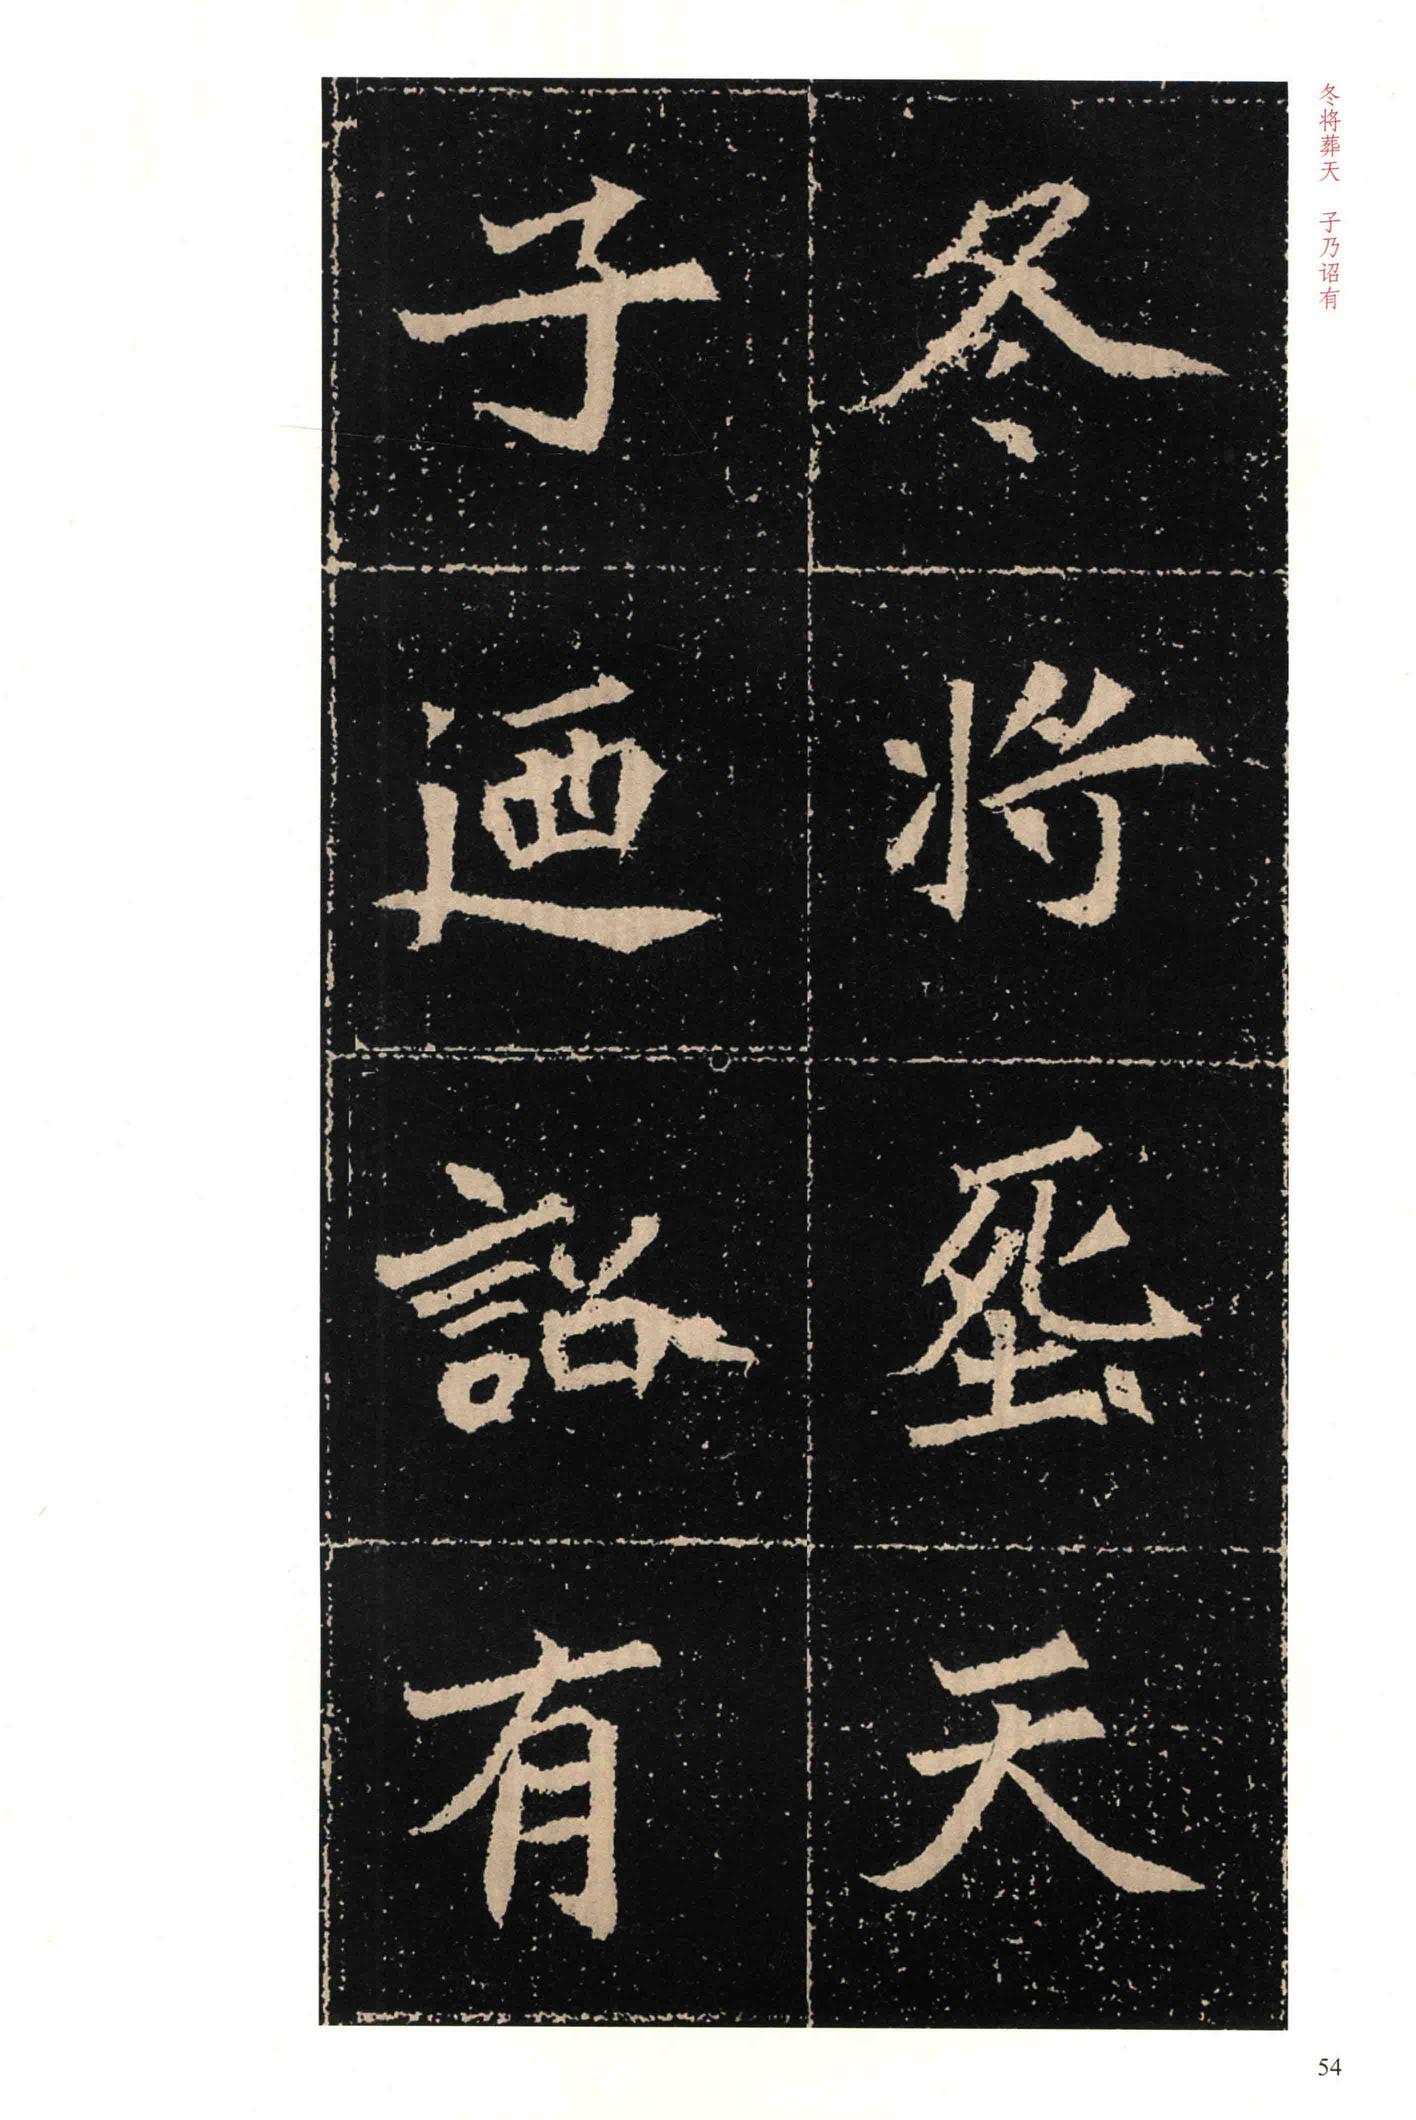 冬将葬天　子乃诏有
冬将葬天
子迺詔有
54